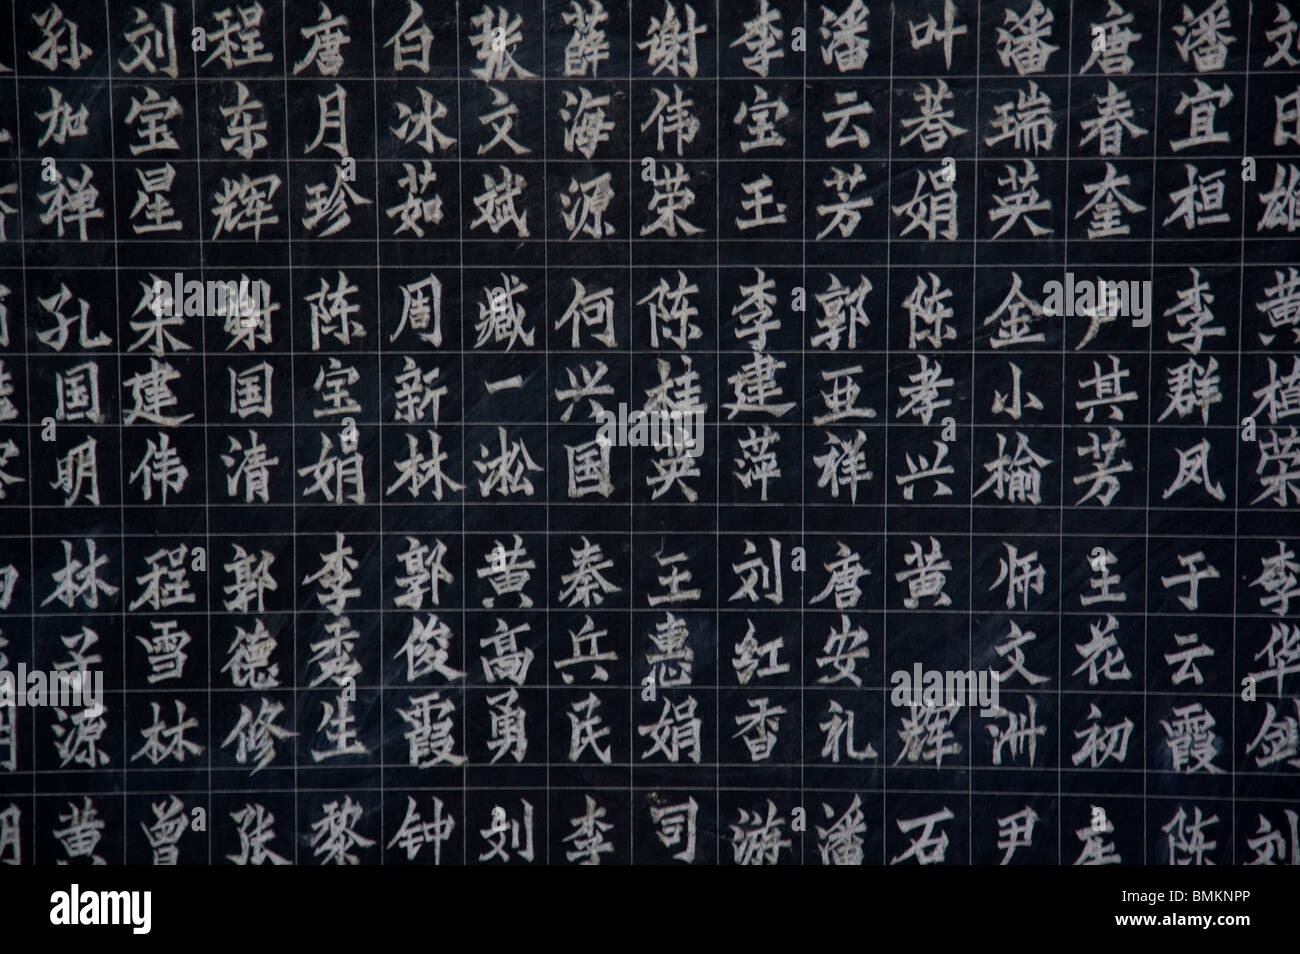 孙加禅
刘宝星
程东辉
唐月珍
白冰茹
张文斌
薛海源
谢伟荣
李宝玉
潘云芳
叶娟
潘瑞英
唐春奎
潘宜桓
刘日雄
孔国明
朱建伟
谢国清
陈宝娟
周新林
臧一淞
何兴国
陈桂英
李建萍
郭亚祥
陈孝兴
金小榆
卢其芳
李群凤
黄植荣
林子源
程雪林
郭德修
李秀生
郭俊霞
黄高勇
秦兵民
王惠娟
刘红香
唐安礼
黄辉
师文洲
王花初
于云霞
李华剑
黄
曾
张
黎
钟
刘
李
司
游
潘
石
尹
陈
刘
alamy
Image ID: BMKNPP
www.alamy.com